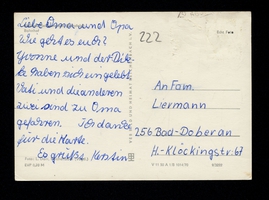 Liebe Oma und Opa
Wie geht es euch?
Yvonne und der Dik-
ke haben sich eingelebt.
Vati und die anderen
zwei sind zu Oma
gefahren. Ich danke
für die Karte.
Es grüßt Kerstin
222
An Fam.
Liermann
256 Bad-Doberan
H.-Klöckingstr. 67